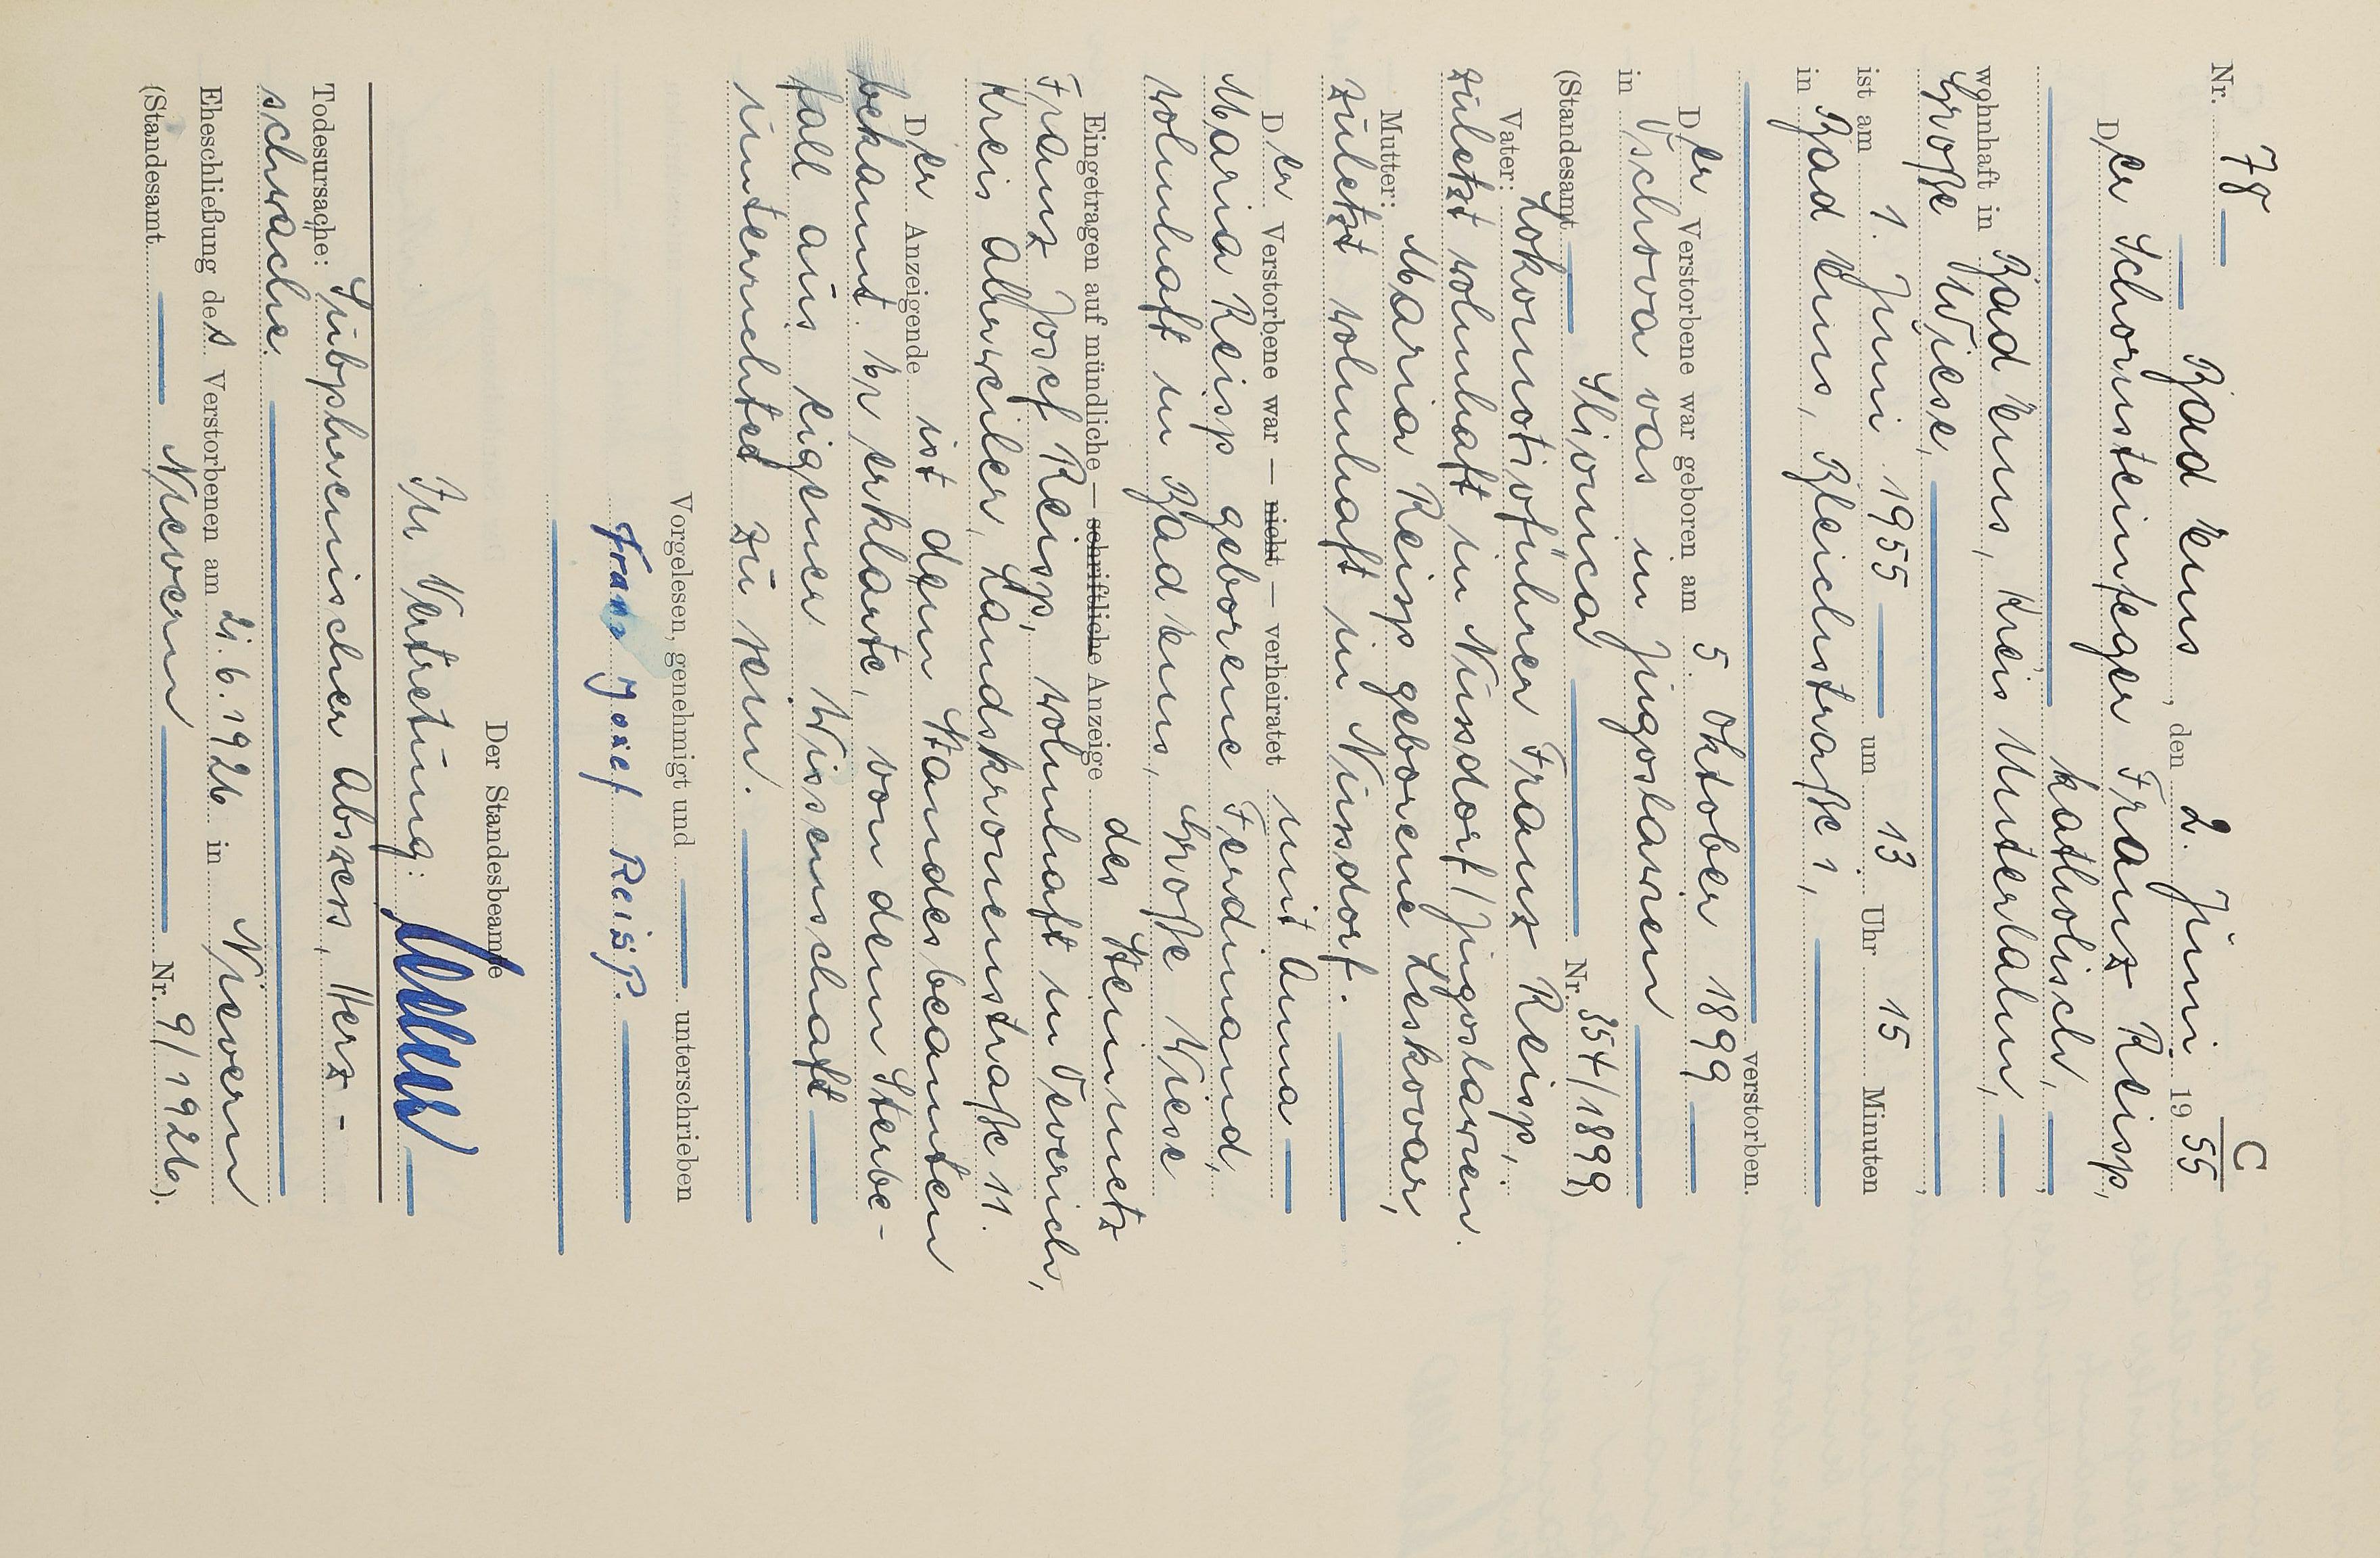 C
Nr. 78
Bad Ems, den 2. Juni 1955
Der Schornsteinfeger Franz Reisp,
katholisch,
wohnhaft in Bad Ems, Kreis Unterlahn,
Große Wiese,
ist am 1. Juni 1955 um 13 Uhr 15 Minuten
in Bad Ems, Bleichstraße 1,
verstorben.
Der Verstorbene war geboren am 5. Oktober 1899
in Vschova vas in Jugoslawien
(Standesamt Slivnica Nr. 354/1899)
Vater: Lokomotivführer Franz Reisp,
zuletzt wohnhaft in Nussdorf/Jugoslawien.
Mutter: Maria Reisp geborene Leskovar,
zuletzt wohnhaft in Nussdorf.
Der Verstorbene war — nicht — verheiratet mit Anna
Maria Reisp geborene Ferdinand,
wohnhaft in Bad Ems, Große Wiese
Eingetragen auf mündliche — schriftliche Anzeige des Steinmetz
Franz Josef Reisp, wohnhaft in Oeverich,
Kreis Ahrweiler, Landskronenstraße 11.
Der Anzeigende ist dem Standesbeamten
bekannt. Er erklärte, von dem Sterbe-
fall aus eigener Wissenschaft
unterrichtet zu sein.
Vorgelesen, genehmigt und unterschrieben
Franz Josef Reisp.
Der Standesbeamte
In Vertretung:
Todesursache: Subphrenischer Abszess, Herz-
schwäche.
Eheschließung des Verstorbenen am 21.6.1926 in Nievern
(Standesamt Nievern Nr. 9/1926).